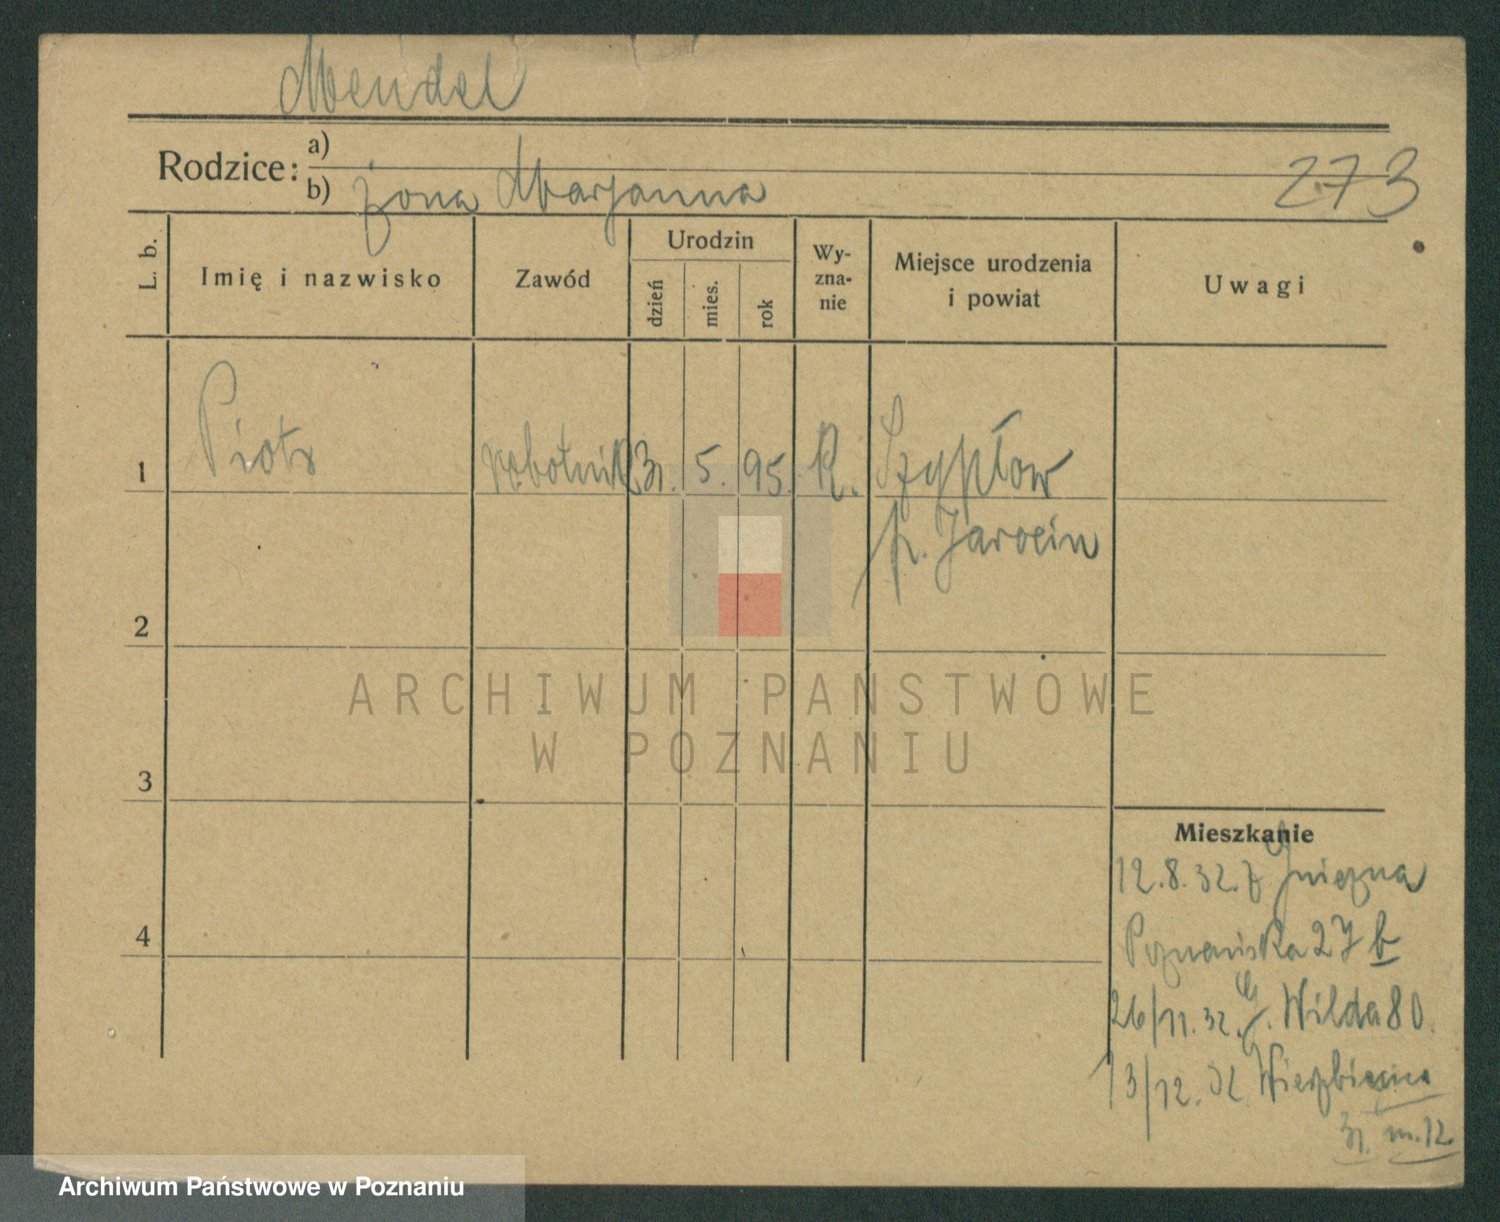 Mendel
Rodzice: a)
b) żona Marjanna
273
L. b.
Imię i nazwisko
Zawód
Urodzin
dzień
mies.
rok
Wy-
zna-
nie
Miejsce urodzenia
i powiat
Uwagi
1 Piotr robotnik 31. 5. 95. k. Szypłow
p. Jarocin
2
3
4
Mieszkanie
12.8.32. z Gniezna
Poznańska 27 b
26/11.32. G. Wilda 80.
13/12.32 Wierzbięcice
31. m.12
ARCHIWUM PAŃSTWOWE
W POZNANIU
Archiwum Państwowe w Poznaniu